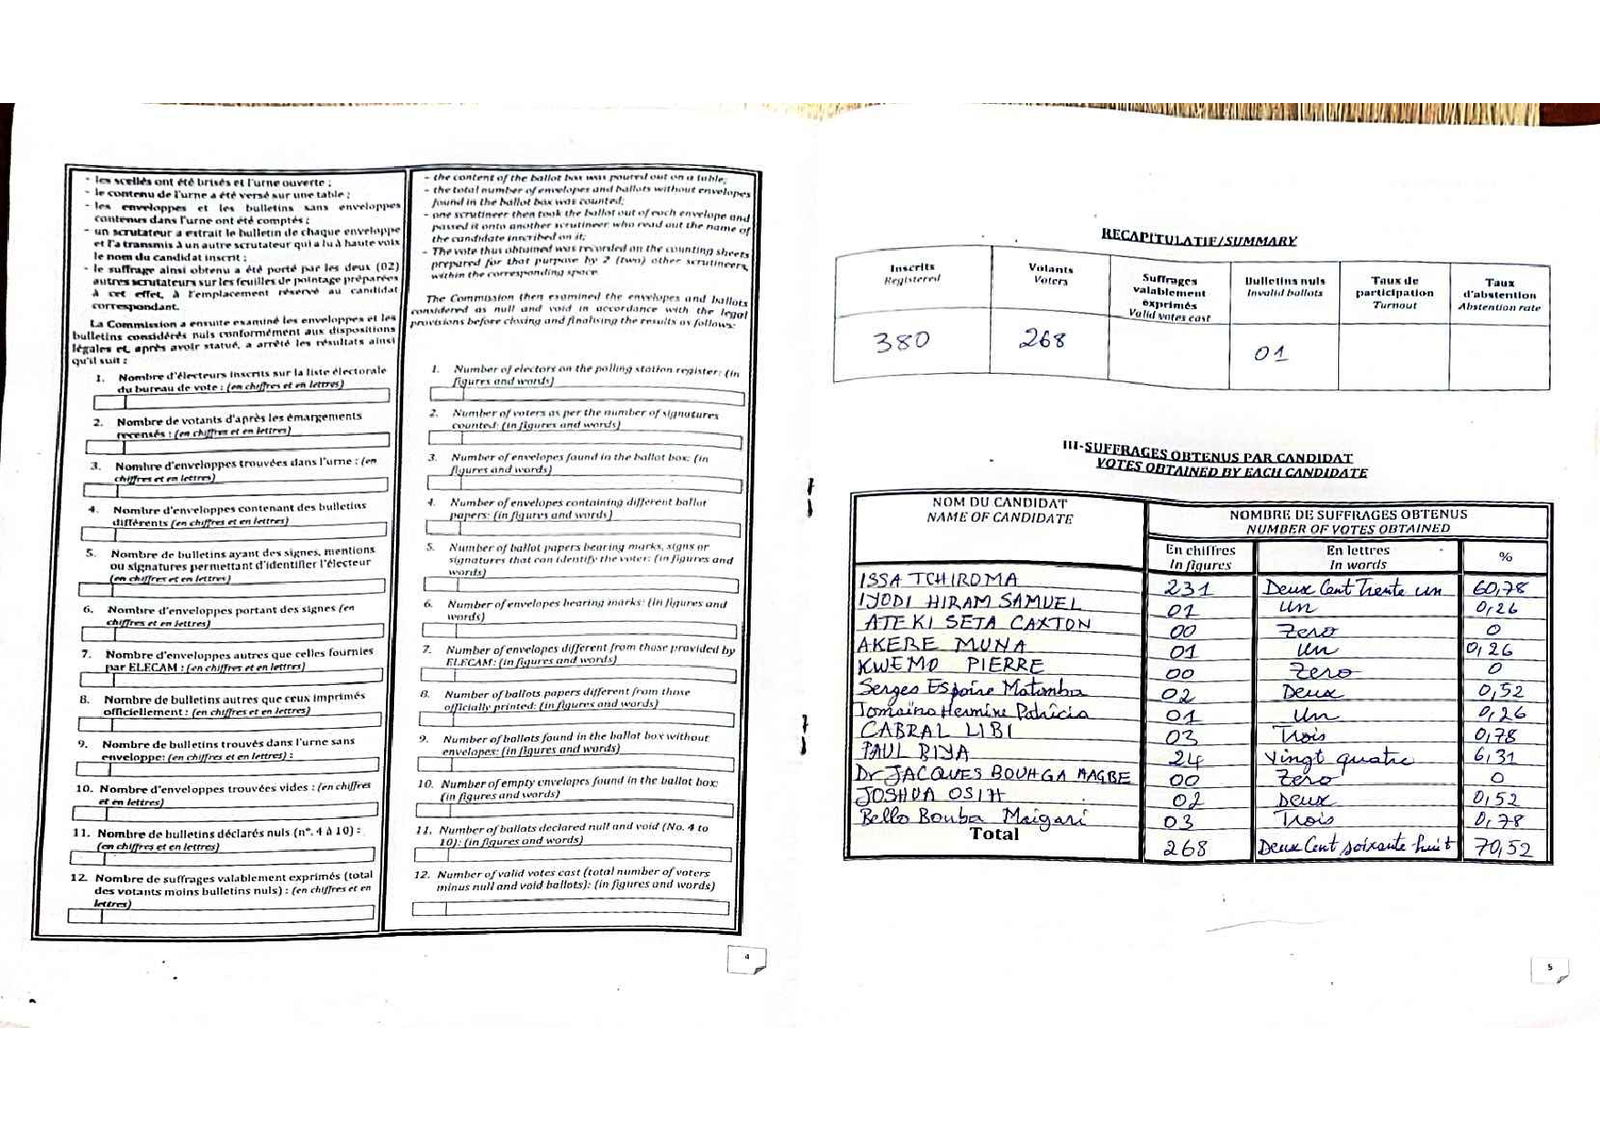 - les scellés ont été brisés et l'urne ouverte ;
- le contenu de l'urne a été versé sur une table ;
- les enveloppes et les bulletins sans enveloppes
contenues dans l'urne ont été comptés ;
- un scrutateur a extrait le bulletin de chaque enveloppe
et l'a transmis à un autre scrutateur qui a lu à haute voix
le nom du candidat inscrit ;
- le suffrage ainsi obtenu a été porté par les deux (02)
autres scrutateurs sur les feuilles de pointage préparées
à cet effet, à l'emplacement réservé au candidat
correspondant.
La Commission a ensuite examiné les enveloppes et les
bulletins considérés nuls conformément aux dispositions
légales et, après avoir statué, a arrêté les résultats ainsi
qu'il suit :
1. Nombre d'électeurs inscrits sur la liste électorale
du bureau de vote : (en chiffres et en lettres)
2. Nombre de votants d'après les émargements
recensés : (en chiffres et en lettres)
3. Nombre d'enveloppes trouvées dans l'urne : (en
chiffres et en lettres)
4. Nombre d'enveloppes contenant des bulletins
différents (en chiffres et en lettres)
5. Nombre de bulletins ayant des signes, mentions
ou signatures permettant d'identifier l'électeur
(en chiffres et en lettres)
6. Nombre d'enveloppes portant des signes (en
chiffres et en lettres)
7. Nombre d'enveloppes autres que celles fournies
par ELECAM : (en chiffres et en lettres)
8. Nombre de bulletins autres que ceux imprimés
officiellement : (en chiffres et en lettres)
9. Nombre de bulletins trouvés dans l'urne sans
enveloppe: (en chiffres et en lettres) :
10. Nombre d'enveloppes trouvées vides : (en chiffres
et en lettres)
11. Nombre de bulletins déclarés nuls (n°. 4 à 10) :
(en chiffres et en lettres)
12. Nombre de suffrages valablement exprimés (total
des votants moins bulletins nuls) : (en chiffres et en
lettres)
- the content of the ballot box was poured out on a table;
- the total number of envelopes and ballots without envelopes
found in the ballot box was counted;
- one scrutineer then took the ballot out of each envelope and
passed it onto another scrutineer who read out the name of
the candidate inscribed on it;
- The vote thus obtained was recorded on the counting sheets
prepared for that purpose by 2 (two) other scrutineers,
within the corresponding space.
The Commission then examined the envelopes and ballots
considered as null and void in accordance with the legal
provisions before closing and finalising the results as follows:
1. Number of electors on the polling station register: (in
figures and words)
2. Number of voters as per the number of signatures
counted: (in figures and words)
3. Number of envelopes found in the ballot box: (in
figures and words)
4. Number of envelopes containing different ballot
papers: (in figures and words)
5. Number of ballot papers bearing marks, signs or
signatures that can identify the voter: (in figures and
words)
6. Number of envelopes bearing marks: (in figures and
words)
7. Number of envelopes different from those provided by
ELECAM: (in figures and words)
8. Number of ballots papers different from those
officially printed: (in figures and words)
9. Number of ballots found in the ballot box without
envelopes: (in figures and words)
10. Number of empty envelopes found in the ballot box:
(in figures and words)
11. Number of ballots declared null and void (No. 4 to
10): (in figures and words)
12. Number of valid votes cast (total number of voters
minus null and void ballots): (in figures and words)
4
RECAPITULATIF/SUMMARY
Inscrits Registered
Votants Voters
Suffrages valablement exprimés Valid votes cast
Bulletins nuls Invalid ballots
Taux de participation Turnout
Taux d'abstention Abstention rate
380 268 01
III-SUFFRAGES OBTENUS PAR CANDIDAT
VOTES OBTAINED BY EACH CANDIDATE
NOM DU CANDIDAT
NAME OF CANDIDATE
NOMBRE DE SUFFRAGES OBTENUS
NUMBER OF VOTES OBTAINED
En chiffres In figures
En lettres In words
%
ISSA TCHIROMA 231 Deux Cent Trente un 60,78
IYODI HIRAM SAMUEL 01 un 0,26
ATEKI SETA CAXTON 00 Zero 0
AKERE MUNA 01 un 0,26
KWEMO PIERRE 00 Zero 0
Serges Espoire Matomba 02 Deux 0,52
Tomaïno Hermine Patricia 01 un 0,26
CABRAL LIBI 03 Trois 0,78
PAUL BIYA 24 Vingt quatre 6,31
Dr JACQUES BOUHGA HAGBE 00 Zero 0
JOSHUA OSIH 02 Deux 0,52
Bello Bouba Maigari 03 Trois 0,78
Total 268 Deux Cent soixante huit 70,52
5